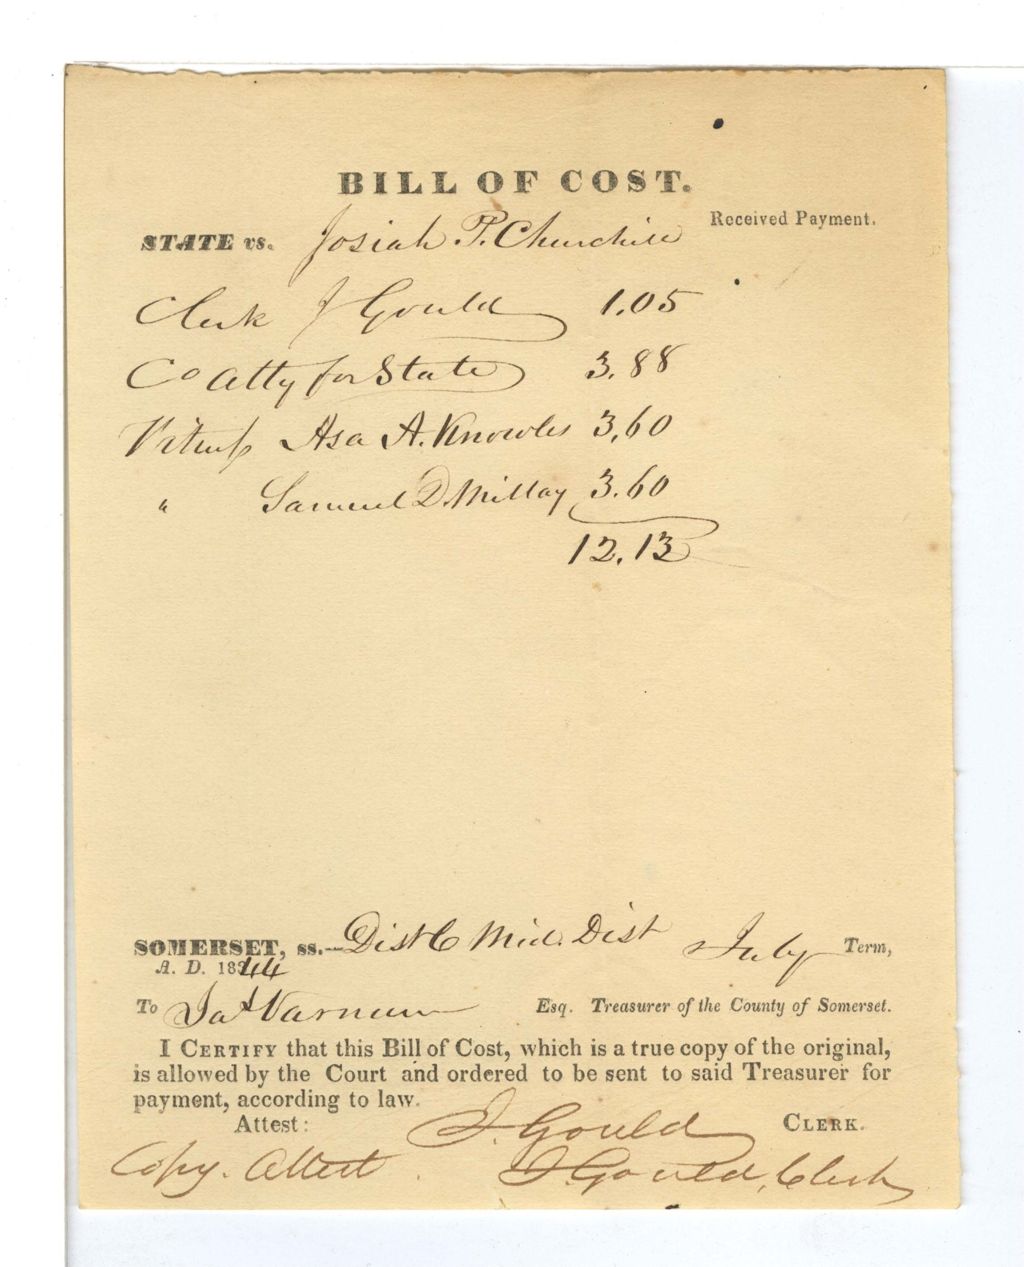 BILL OF COST.
Received Payment.
STATE vs. Josiah P. Churchill
Clerk J Gould 1.05
Co Atty for State 3.88
Witness Asa A. Knowles 3.60
" Samuel D. Millay 3.60
12.13
SOMERSET, ss.— Dist C Mid. Dist July Term,
A. D. 1844
To Jas Varnum Esq. Treasurer of the County of Somerset.
I CERTIFY that this Bill of Cost, which is a true copy of the original,
is allowed by the Court and ordered to be sent to said Treasurer for
payment, according to law.
Attest: J. Gould CLERK.
Copy. Attest J. Gould, Clerk